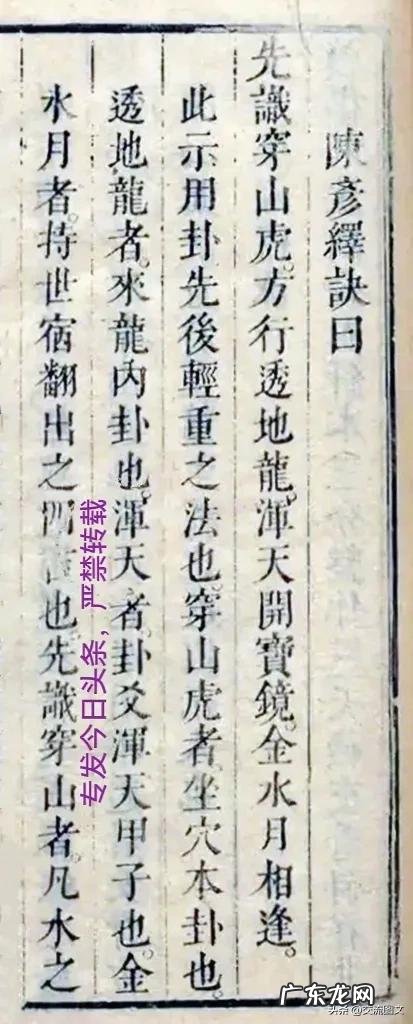 陳彥繹訣曰
先識穿山虎。方行透地龍。渾天開寶鏡。金水月相逢。
此示用卦先後輕重之法也。穿山虎者。坐穴本卦也。
透地龍者。來龍內卦也。渾天者。卦爻渾天甲子也。金
水月者。持世宿翻出之四也先識穿山者。凡水之
专发今日头条，严禁转载
广东龙网
头条 @交流图文